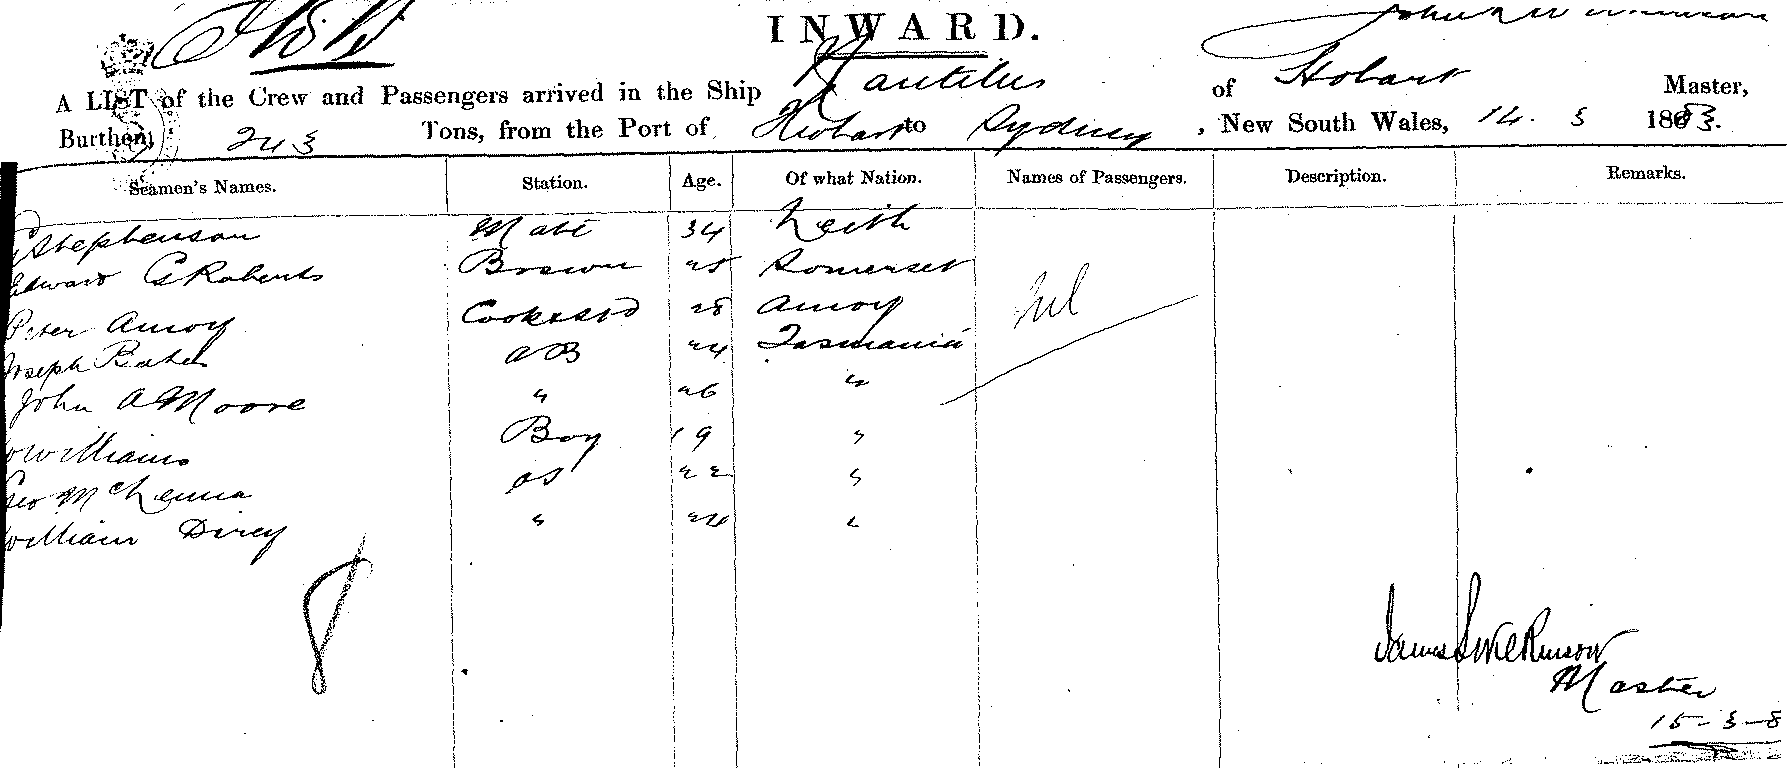 INWARD.
A LIST of the Crew and Passengers arrived in the Ship Nautilus of Hobart Master,
Burthen, 243 Tons, from the Port of Hobart to Sydney, New South Wales, 14. 3 1883.
Seamen's Names. Station. Age. Of what Nation. Names of Passengers. Description. Remarks.
Stephenson Mate 34 Leith
Edward G Roberts 25 Somerset
Peter Amoy Cook & Std 28 Amoy Nil
Joseph Bates AB 24 Tasmania
John A Moore " 26 "
Williams Boy 19 "
Geo McKenna OS 22 "
William Direy " 24 "
8
James S Wilkinson
Master
15-3-8